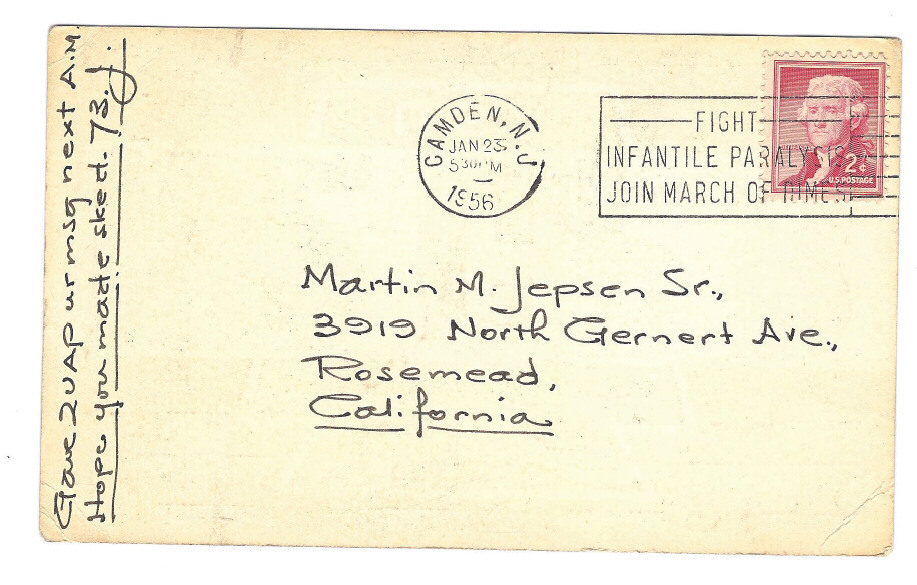 Gave 2UAP ur msg next A.M.
Hope you made sked. 73. J.
CAMDEN, N.J
JAN 23
5 30 PM
1956
FIGHT
INFANTILE PARALYSIS
JOIN MARCH OF DIMES!
2¢
U.S. POSTAGE
Martin M. Jepsen Sr.,
3919 North Gernert Ave.,
Rosemead,
California